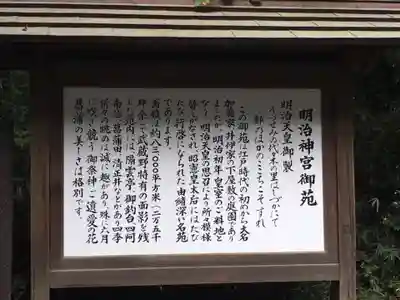 明治神宮御苑
明治天皇御製
うつせみの代々木の里はしづかにて
都のほかのここちこそすれ
この御苑は江戸時代の初めから大名
加藤家、井伊家の下屋敷の庭園であり
ましたが、明治初年皇室のご料地と
なり、明治天皇の思召により所々模様
替がなされ、昭憲皇太后にはたび
たび行啓になられた由緒深い名苑
であります。
面積は約八三、〇〇〇平方米(二万五千
坪余)で武蔵野特有の面影を残
す苑内には、隔雲亭、御釣台、四阿
南池、菖蒲田、清正井などがあり四季
折々の眺めは誠に趣があり、殊に六月
に咲き競う御祭神ご遺愛の花
菖蒲の美しさは格別です。